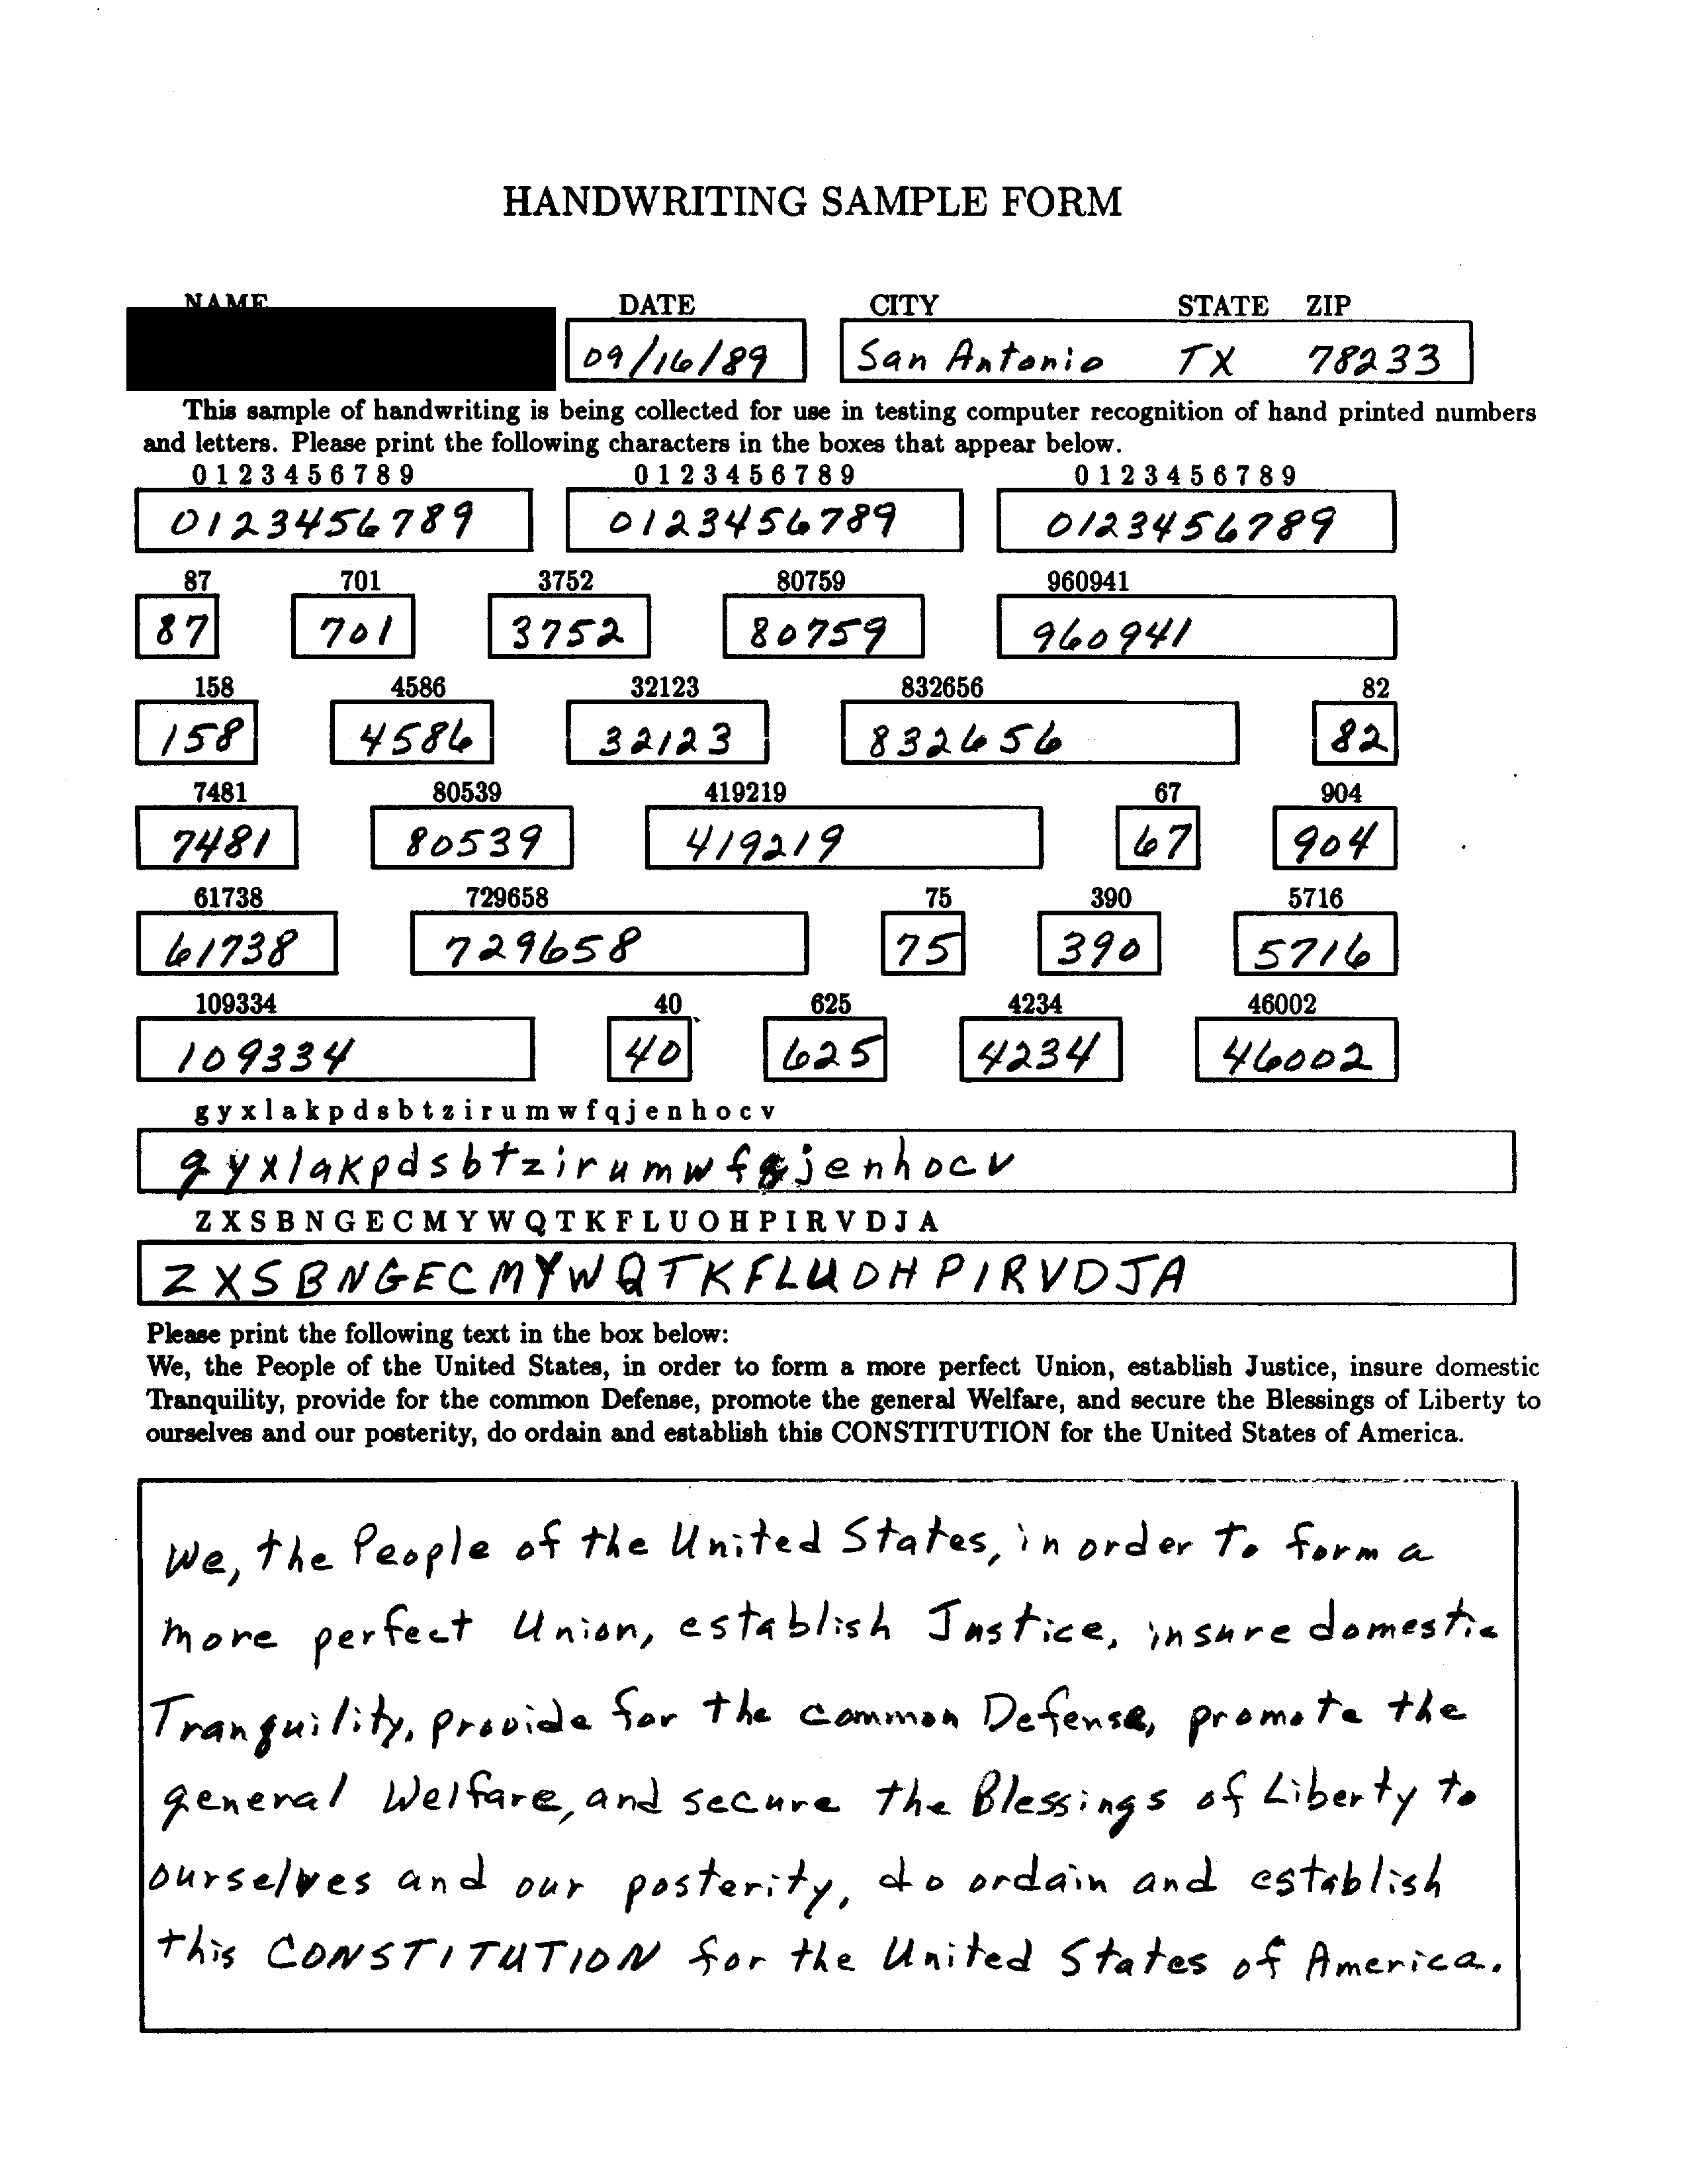 HANDWRITING SAMPLE FORM
NAME DATE CITY STATE ZIP
09/16/89 San Antonio TX 78233
This sample of handwriting is being collected for use in testing computer recognition of hand printed numbers
and letters. Please print the following characters in the boxes that appear below.
0 1 2 3 4 5 6 7 8 9 0 1 2 3 4 5 6 7 8 9 0 1 2 3 4 5 6 7 8 9
0123456789 0123456789 0123456789
87 701 3752 80759 960941
87 701 3752 80759 960941
158 4586 32123 832656 82
158 4586 32123 832656 82
7481 80539 419219 67 904
7481 80539 419219 67 904
61738 729658 75 390 5716
61738 729658 75 390 5716
109334 40 625 4234 46002
109334 40 625 4234 46002
g y x l a k p d s b t z i r u m w f q j e n h o c v
g y x l a k p d s b t z i r u m w f q j e n h o c v
Z X S B N G E C M Y W Q T K F L U O H P I R V D J A
Z X S B N G E C M Y W Q T K F L U O H P I R V D J A
Please print the following text in the box below:
We, the People of the United States, in order to form a more perfect Union, establish Justice, insure domestic
Tranquility, provide for the common Defense, promote the general Welfare, and secure the Blessings of Liberty to
ourselves and our posterity, do ordain and establish this CONSTITUTION for the United States of America.
We, the People of the United States, in order to form a
more perfect Union, establish Justice, insure domestic
Tranquility, provide for the common Defense, promote the
general Welfare, and secure the Blessings of Liberty to
ourselves and our posterity, do ordain and establish
this CONSTITUTION for the United States of America.